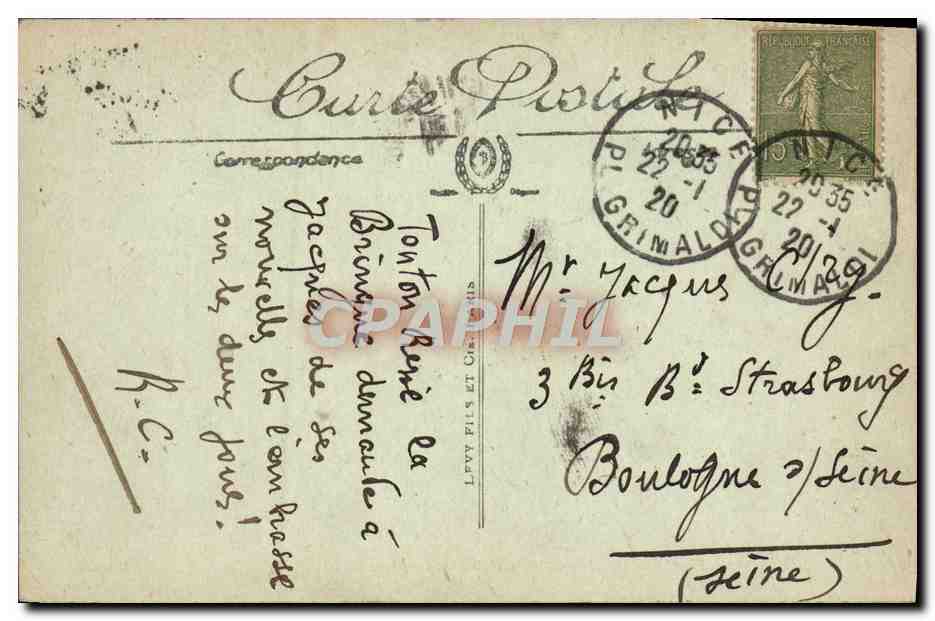 Carte Postale
Correspondance
RÉPUBLIQUE FRANÇAISE
15
NICE
20 35
22 -1
20
PL. GRIMALDI
NICE
20 35
22 -1
20
PL. GRIMALDI
Tonton René la
Bringue demande à
Jacques de ses
nouvelles et l'embrasse
sur les deux joues!
R. C.
LEVY FILS ET CIE PARIS
Mr. Jacques
3 Bis Bd. Strasbourg
Boulogne s/Seine
(Seine)
CPAPHIL